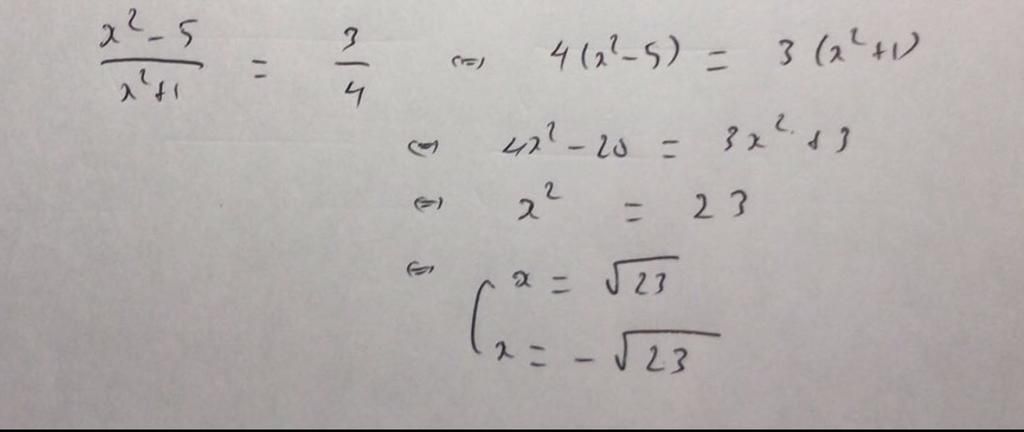 (x² - 5)/(x² + 1) = 3/4 ⇔ 4(x² - 5) = 3(x² + 1)
⇔ 4x² - 20 = 3x² + 3
⇔ x² = 23
⇔ [ x = √23
x = -√23